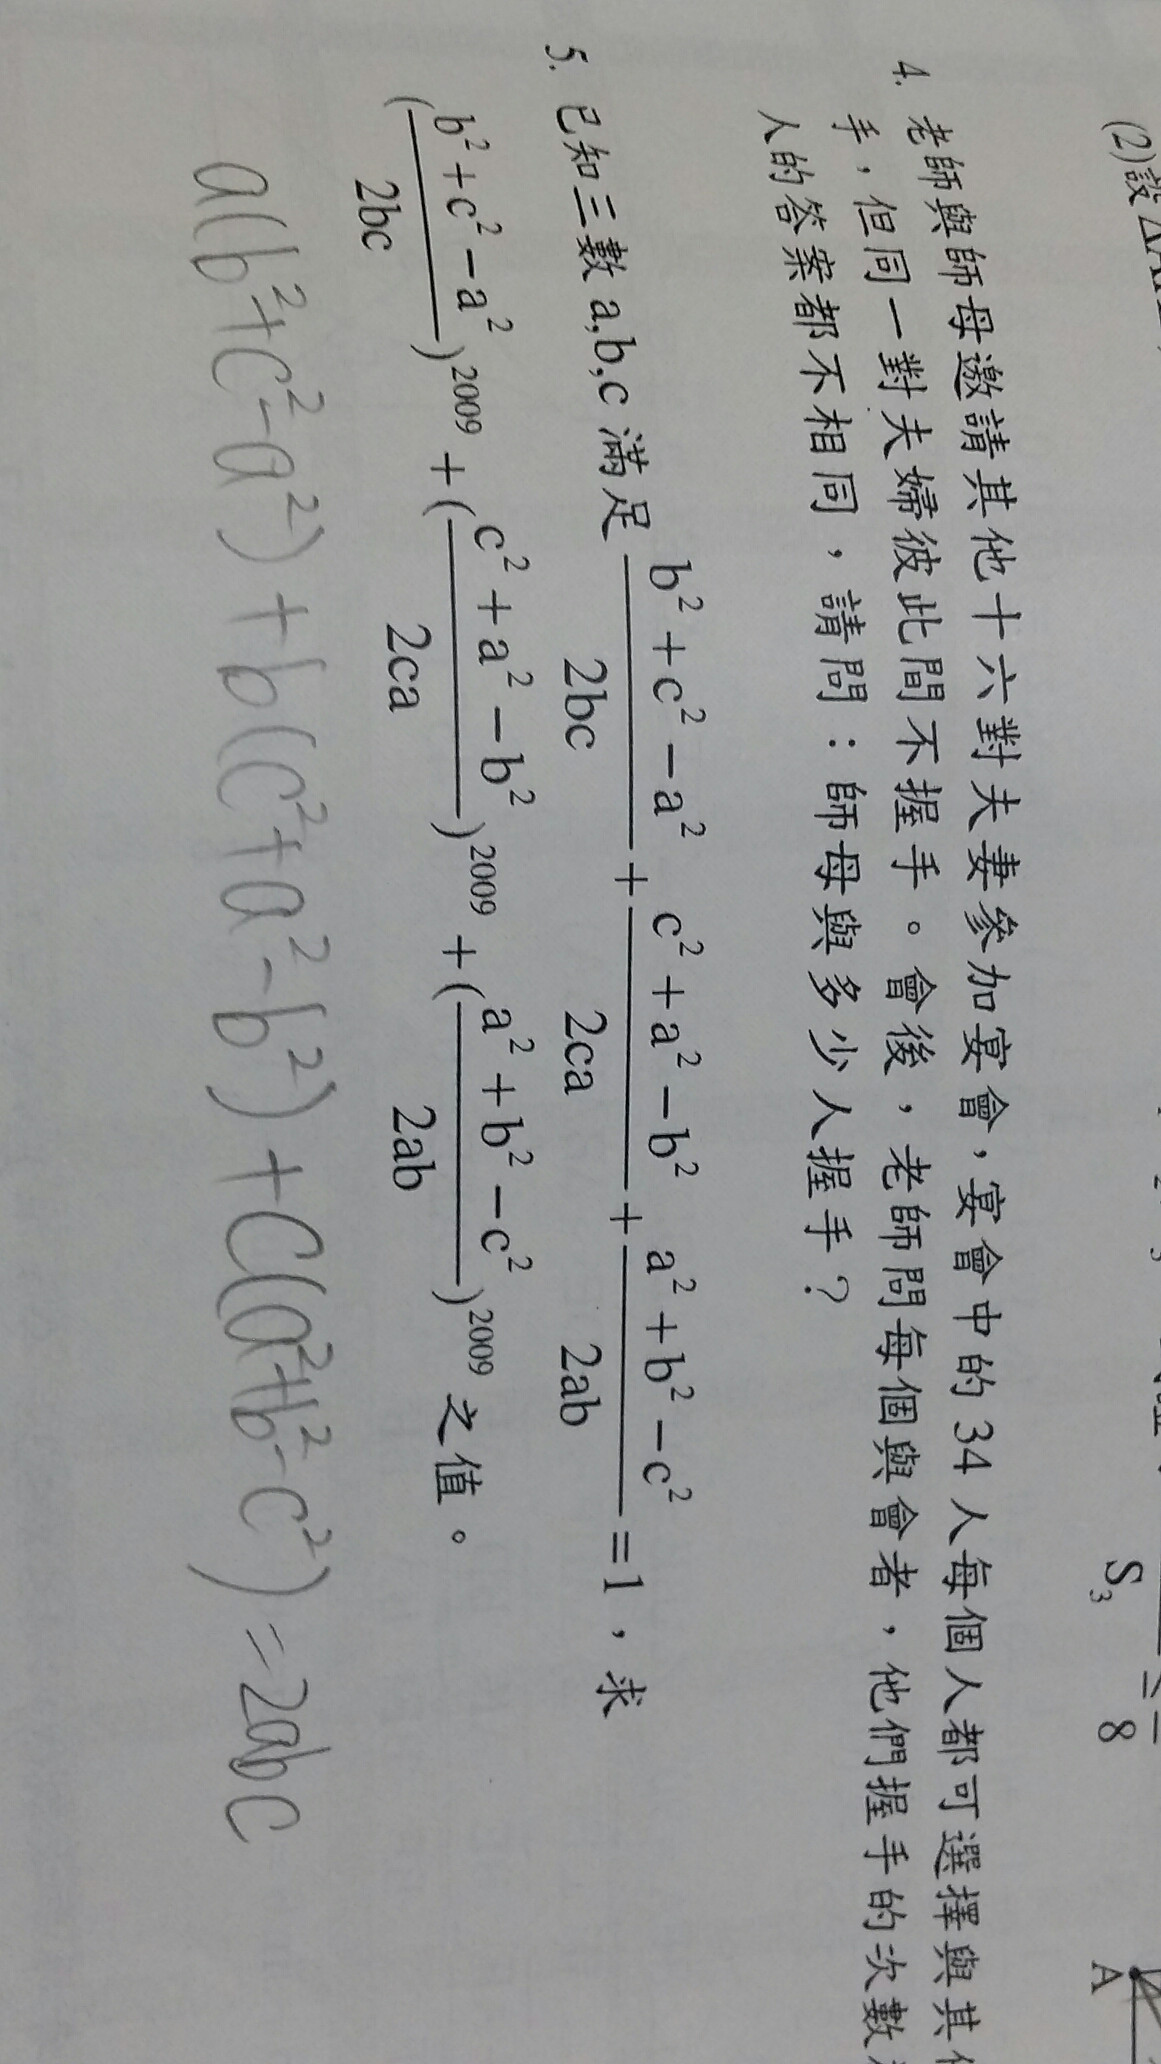 (2)設
S₃
8
A
4. 老師與師母邀請其他十六對夫妻參加宴會，宴會中的 34 人每個人都可選擇與其他
手，但同一對夫婦彼此間不握手。會後，老師問每個與會者，他們握手的次數
人的答案都不相同，請問：師母與多少人握手？
5. 已知三數 a,b,c 滿足 \frac{b² + c² − a²}{2bc} + \frac{c² + a² − b²}{2ca} + \frac{a² + b² − c²}{2ab} = 1，求
(\frac{b² + c² − a²}{2bc})²⁰⁰⁹ + (\frac{c² + a² − b²}{2ca})²⁰⁰⁹ + (\frac{a² + b² − c²}{2ab})²⁰⁰⁹ 之值。
a(b²+c²-a²)+b(c²+a²-b²)+c(a²+b²-c²)=2abc